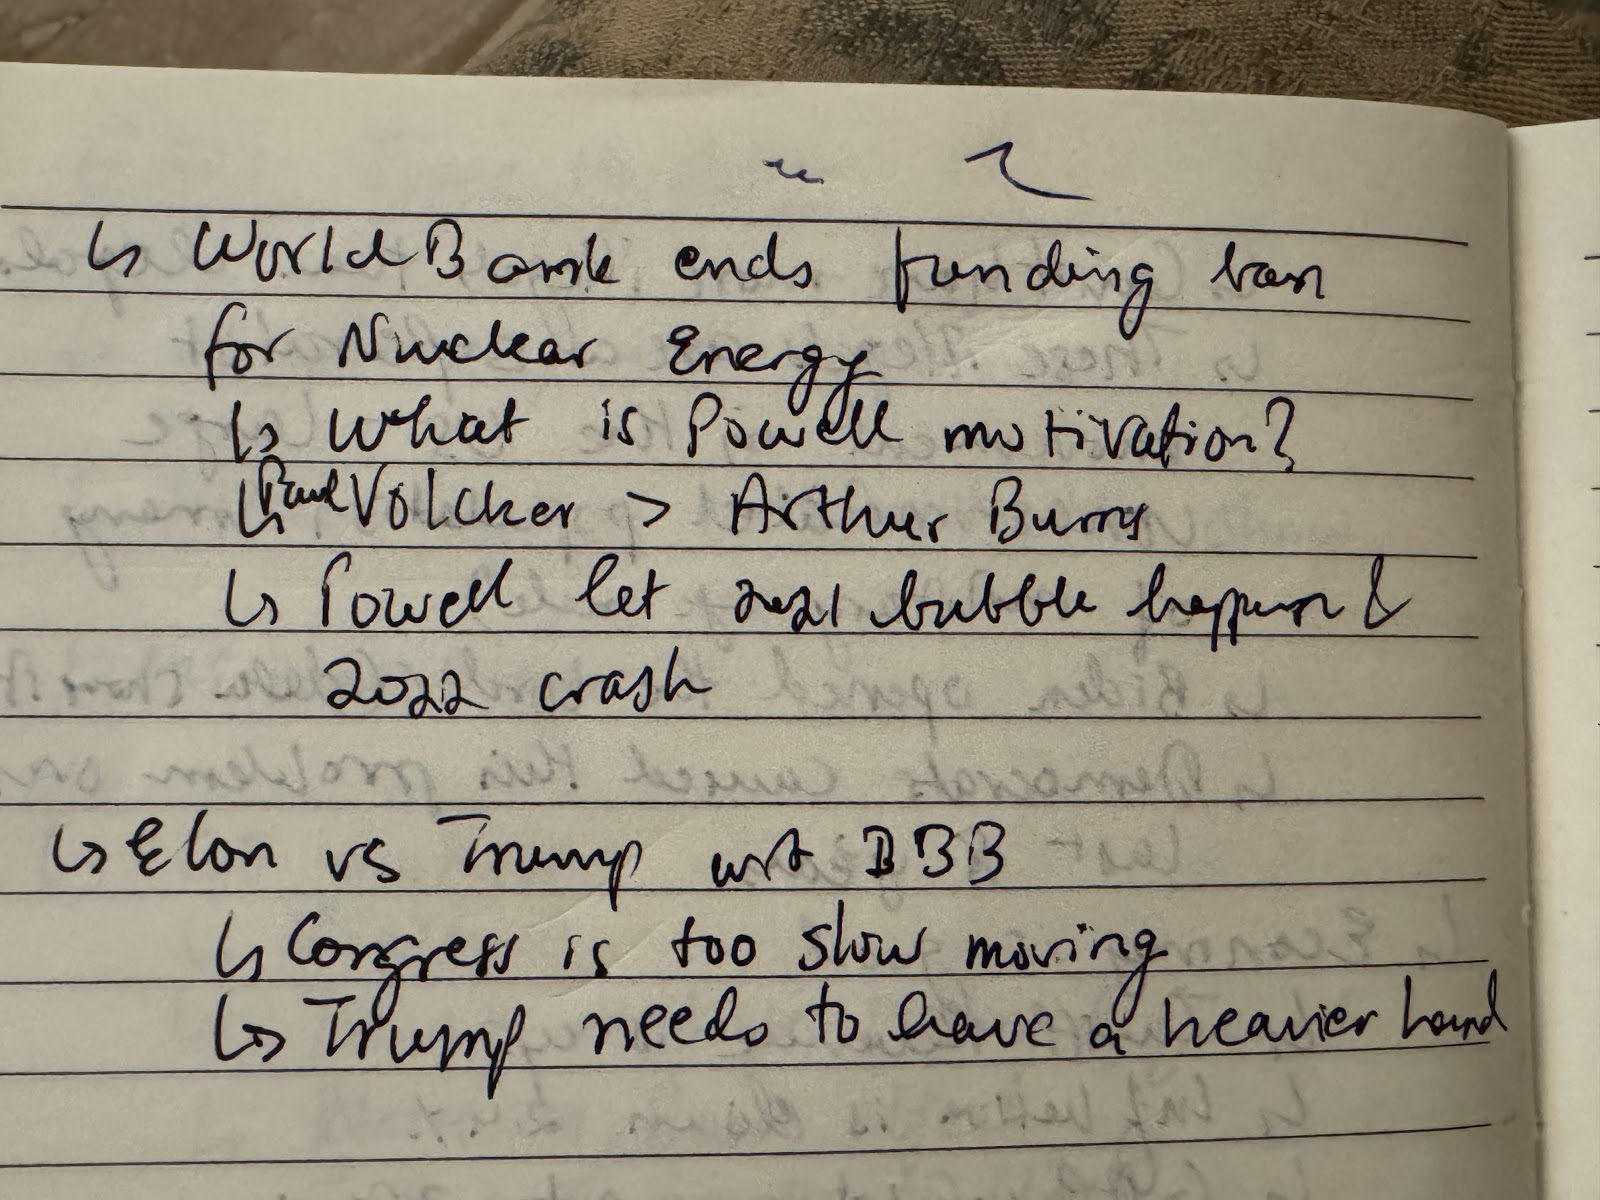 ↳ World Bank ends funding ban
for Nuclear Energy
↳ What is Powell motivation?
↳ Paul Volcker > Arthur Burns
↳ Powell let 2021 bubble happen &
2022 crash
↳ Elon vs Trump wrt BBB
↳ Congress is too slow moving
↳ Trump needs to have a heavier hand